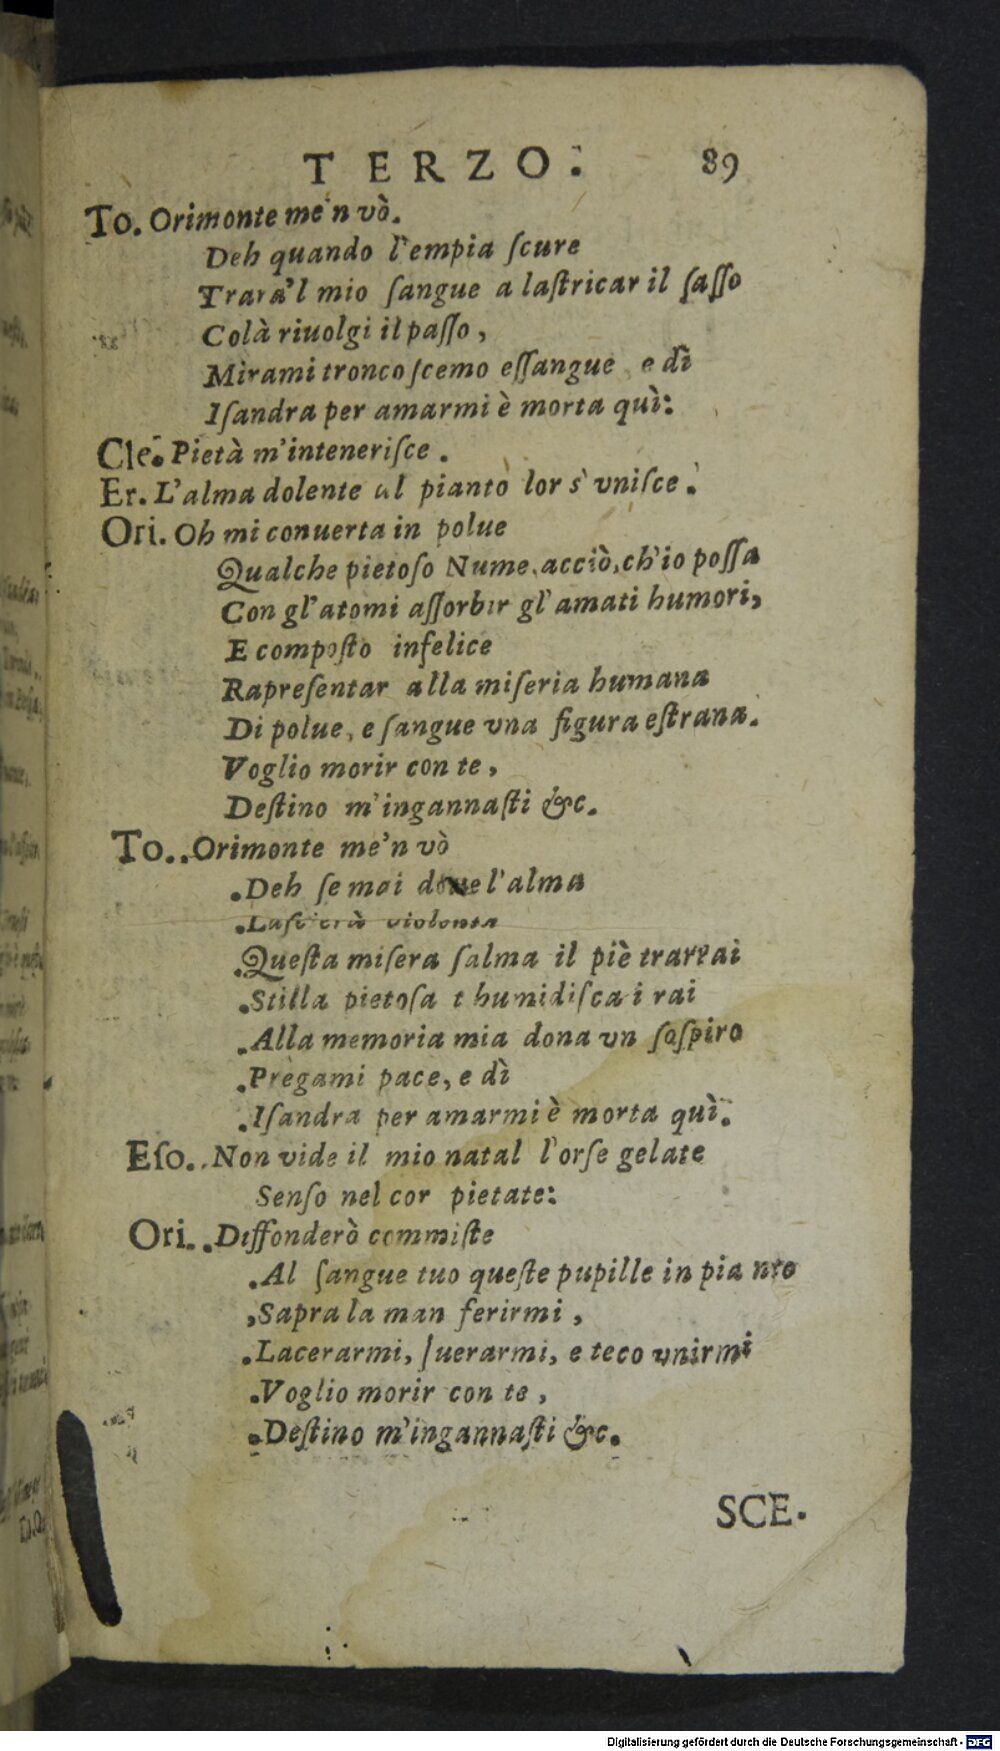 TERZO. 89
To. Orimonte me'n vò.
Deh quando l'empia ſcure
Trarà'l mio ſangue a laſtricar il ſaſſo
Colà riuolgi il paſſo,
Mirami tronco ſcemo eſſangue e dì
Iſandra per amarmi è morta quì:
Cle. Pietà m'inteneriſce.
Er. L'alma dolente al pianto lor s'vniſce.
Ori. Oh mi conuerta in polue
Qualche pietoſo Nume, acciò, ch'io poſſa
Con gl'atomi aſſorbir gl'amati humori,
E compoſto infelice
Rapreſentar alla miſeria humana
Di polue, e ſangue vna figura eſtrana.
Voglio morir con te,
Deſtino m'ingannaſti &c.
To. .Orimonte me'n vò
.Deh ſe mai doue l'alma
.Laſcierà violenta
.Queſta miſera ſalma il piè trarrai
.Stilla pietoſa t humidiſca i rai
.Alla memoria mia dona vn ſoſpiro
.Pregami pace, e dì
.Iſandra per amarmi è morta quì.
Eſo. .Non vide il mio natal l'orſe gelate
Senſo nel cor pietate:
Ori. .Diffonderò commiſte
.Al ſangue tuo queſte pupille in pianto
,Sapra la man ferirmi,
.Lacerarmi, ſuerarmi, e teco vnirmi
.Voglio morir con te,
.Deſtino m'ingannaſti &c.
SCE.
Digitalisierung gefördert durch die Deutsche Forschungsgemeinschaft - DFG